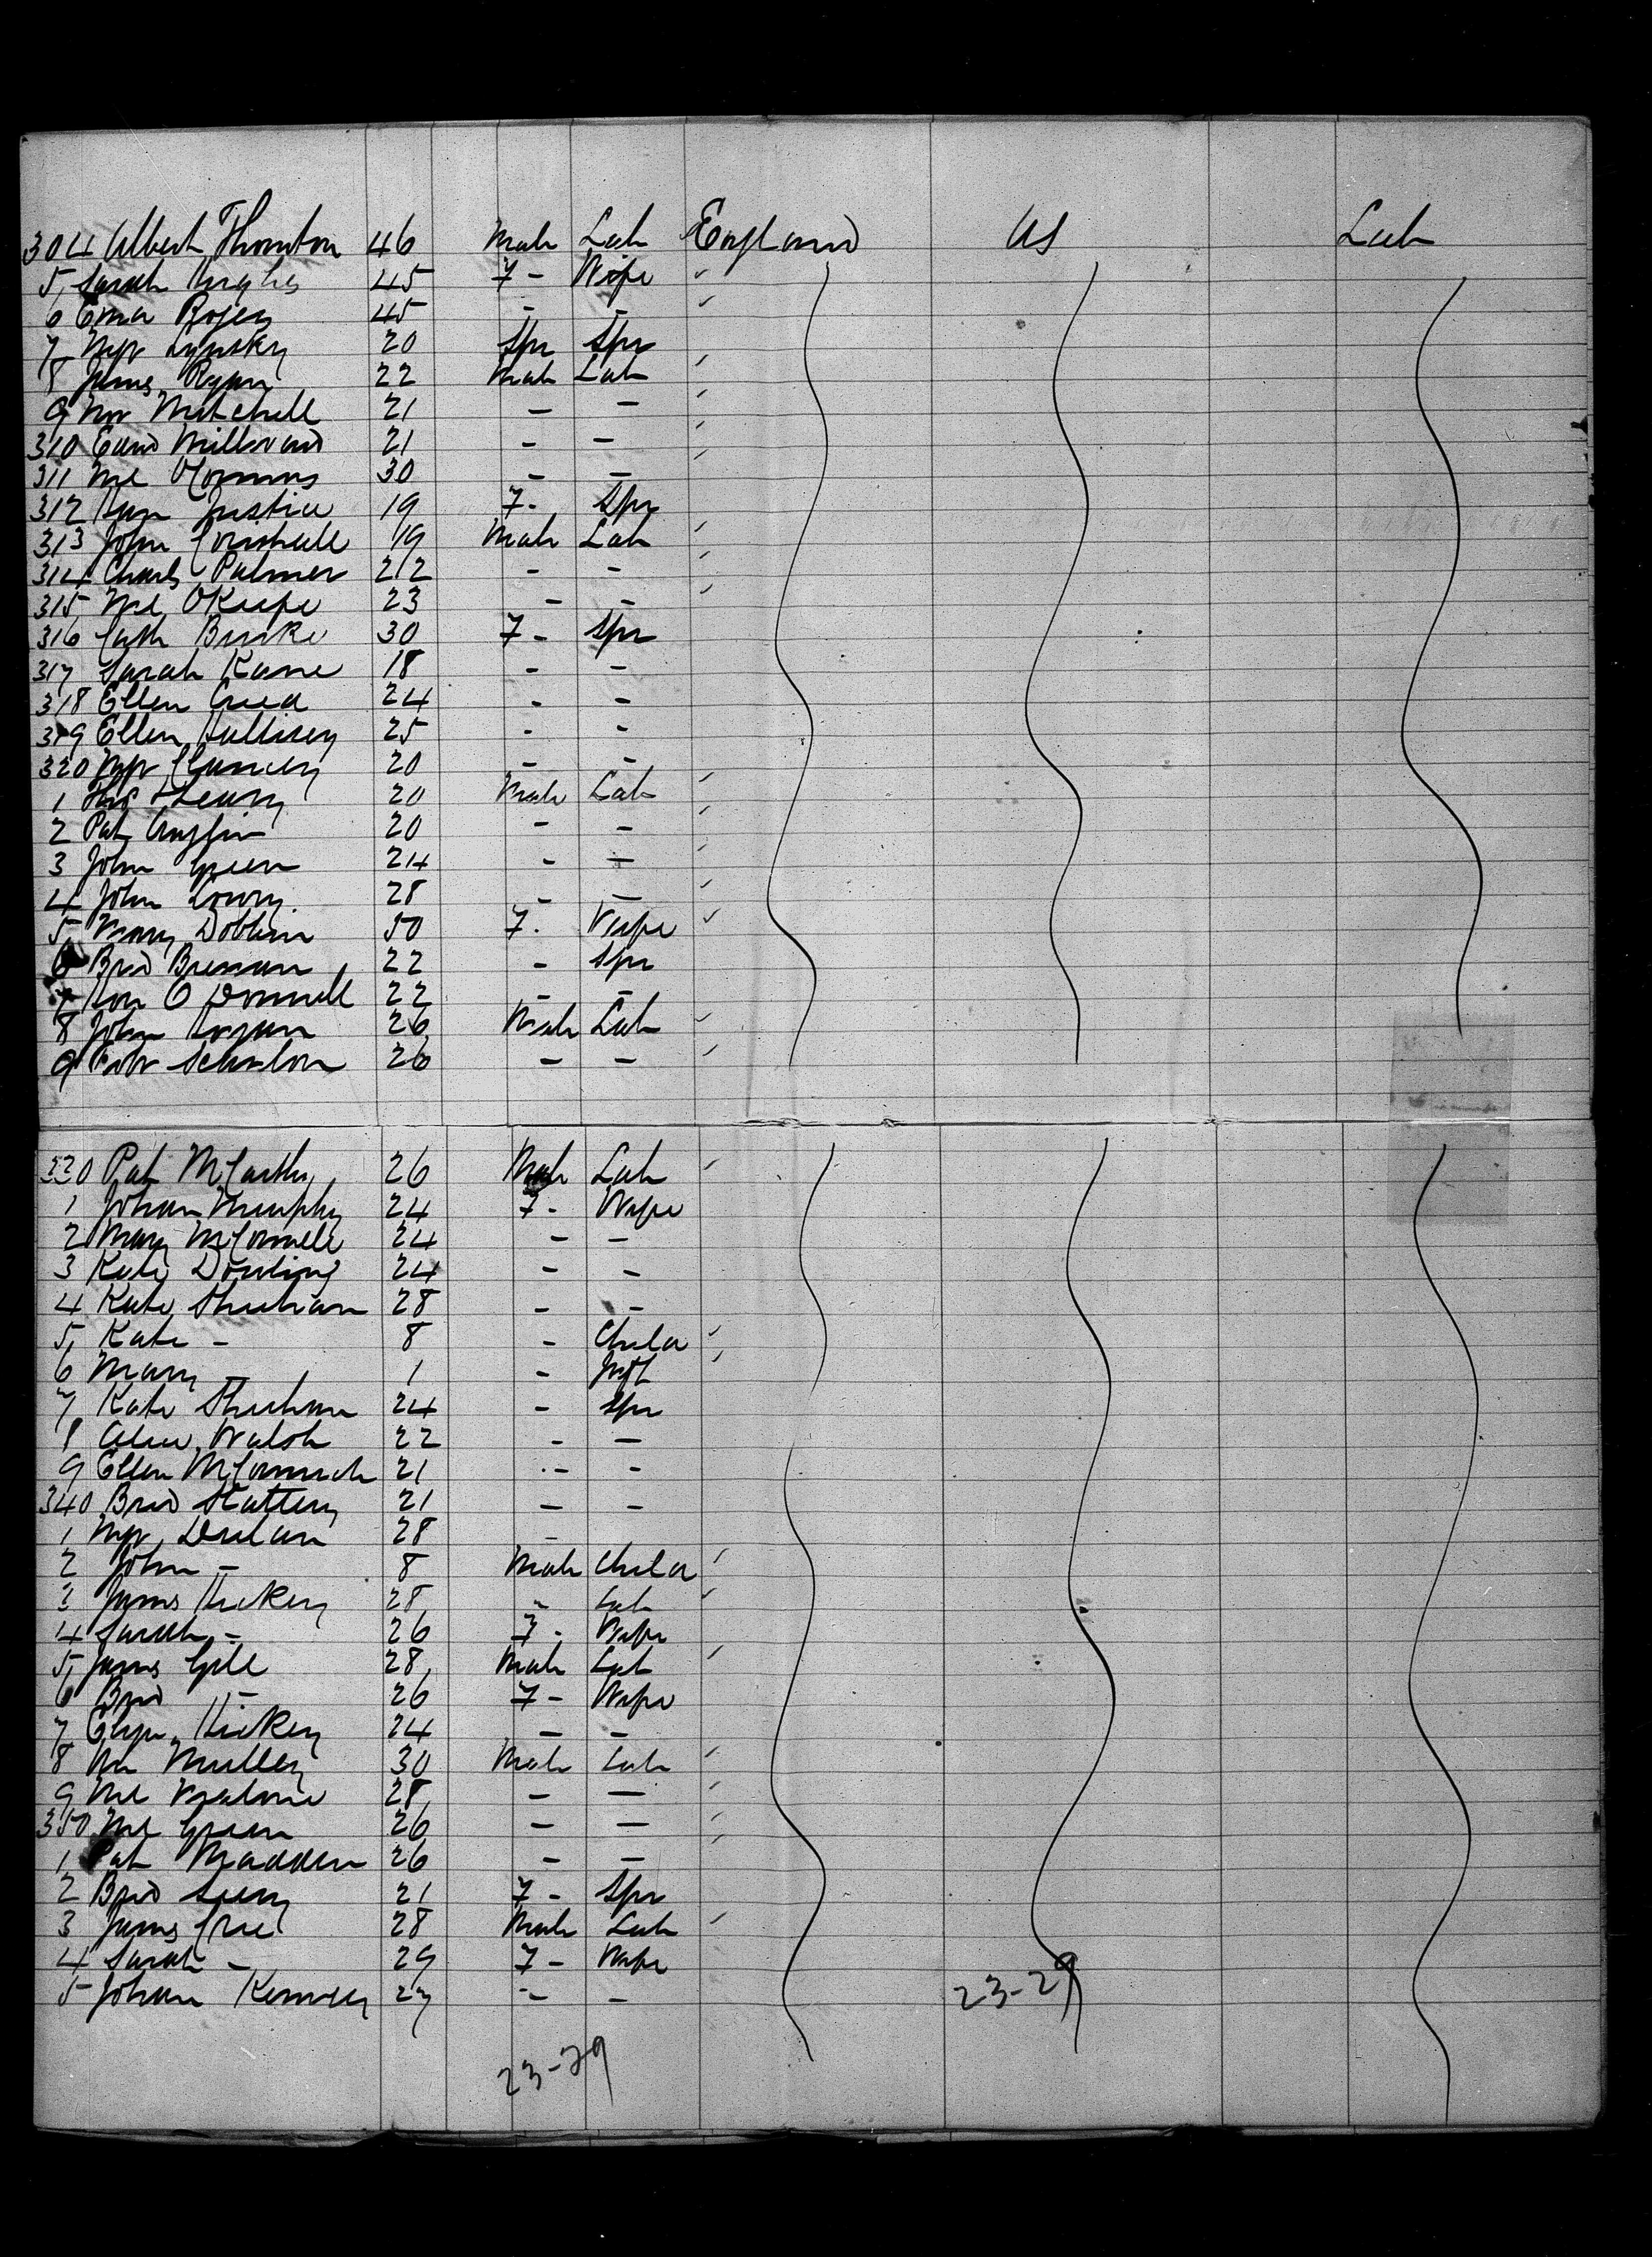 304 Albert Thornton 46 Male Lab England US Lab
5 Sarah Hughes 45 F - Wife
6 Ema Rogers 45 - -
7 Mgt Lynsky 20 Spr Spr
8 James Ryan 22 Male Lab
9 Mitchell 21 - -
310 Edwd Millward 21 - -
311 Ml 30 - -
312 Justice 19 F - Spr
313 John 19 Male Lab
314 Charls Palmer 212 - -
315 Ml OKeefe 23 - -
316 Cath Burke 30 F - Spr
317 Sarah Kane 18 - -
318 Ellen Creed 24 - -
319 Ellen Hallisey 25 - -
320 Mgt Clancey 20 - -
1 Thos 20 Male Lab
2 Pat Anglin 20 - -
3 John Green 24 - -
4 John Lowry 28 - -
5 Mary Dobbin 50 F - Wife
6 Brid Brennan 22 - Spr
7 O Donnell 22 - -
8 John Hogan 26 Male Lab
9 Scanlon 26 - -
330 Pat McCarthy 26 Male Lab
1 Johan Murphy 24 F - Wife
2 Mary McConnell 24 - -
3 Kate Dowling 24 - -
4 Kate Sheehan 28 - -
5 Kate - 8 - Child
6 Mary - 1 - Inft
7 Kate Sheehan 24 - Spr
8 Alice Walsh 22 - -
9 Ellen McCormick 21 - -
340 Brid Slattery 21 - -
1 Mgt Doolan 28 -
2 John - 8 Male Child
3 James Hickey 28 - Lab
4 Sarah - 26 F - Wife
5 James Gill 28 Male Lab
6 Brid - 26 F - Wife
7 Eliza Hickey 24 - -
8 Wm Mulley 30 Male Lab
9 Ml Malone 28 - -
350 Ml Green 26 - -
1 Pat Madden 26 - -
2 Brid 21 F - Spr
3 James 28 Male Lab
4 Sarah - 29 F - Wife
5 Johan 27 - - 23-29
23-29